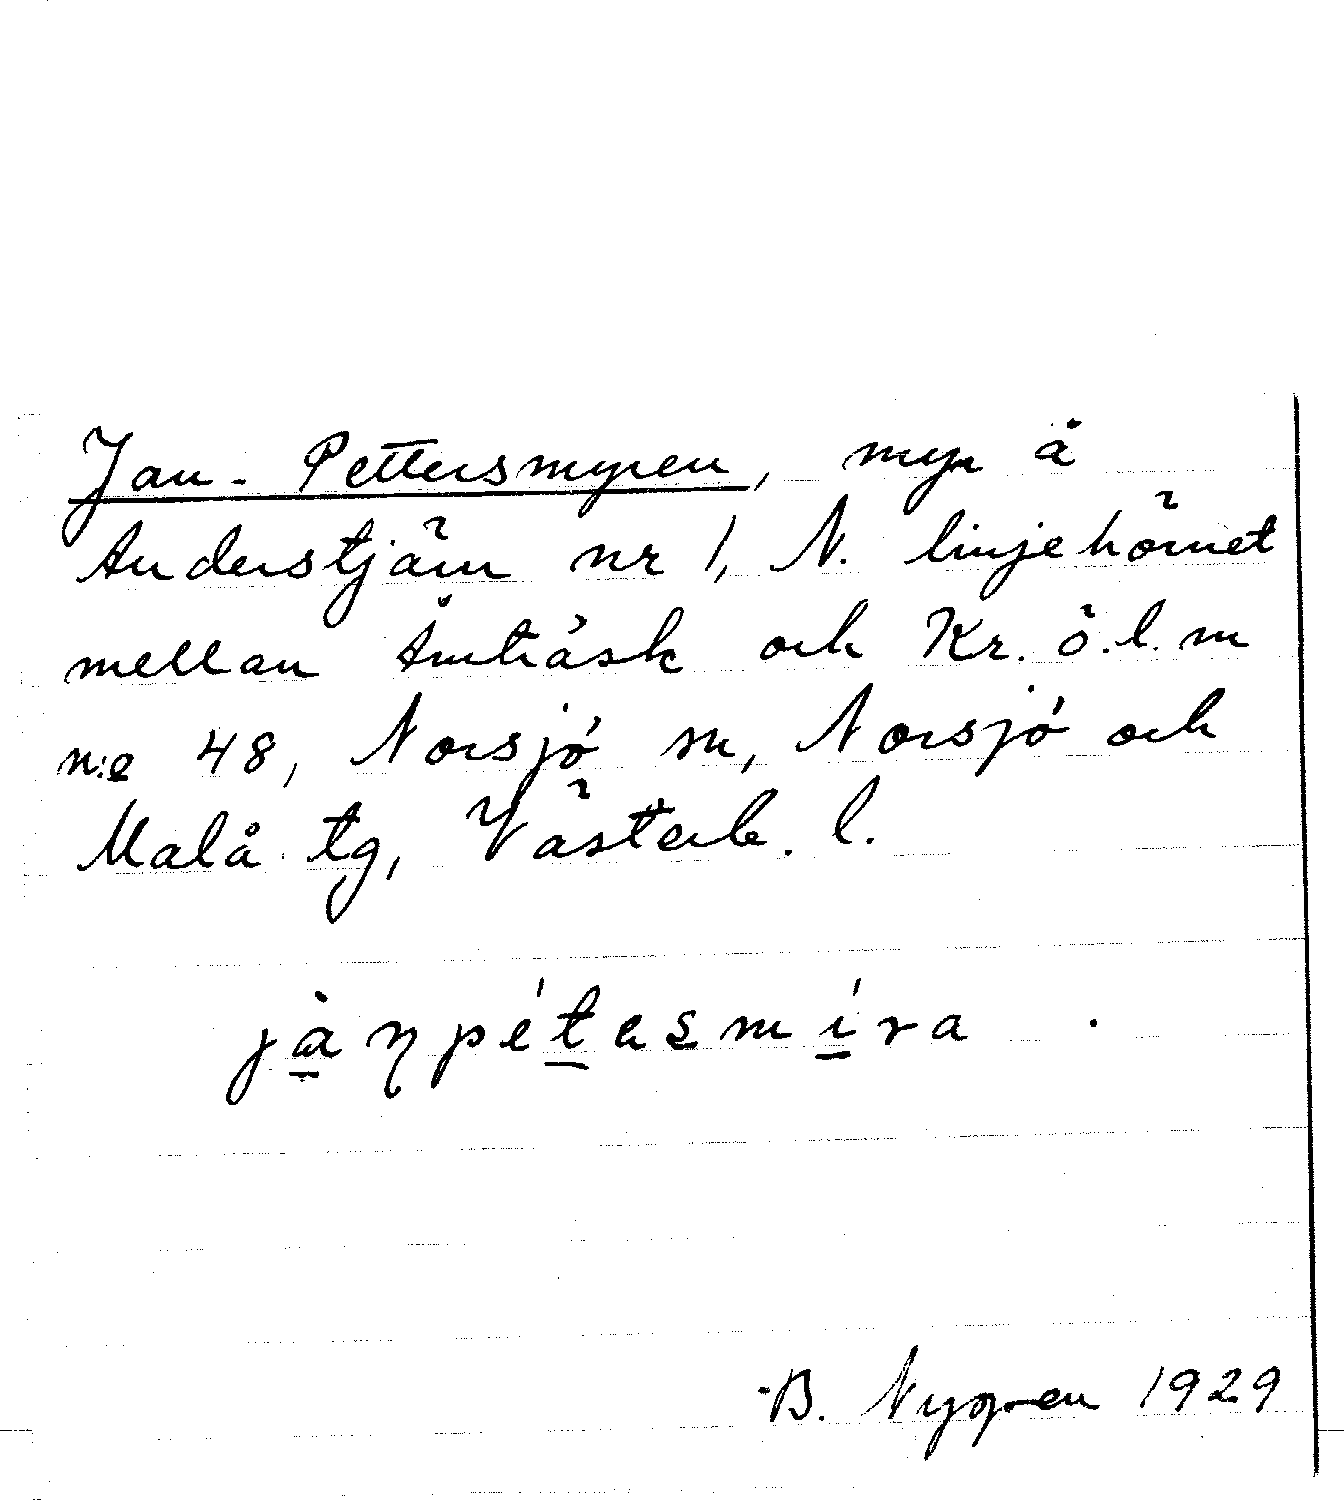 Jan-Pettersmyren, myr å
Anderstjärn nr 1, N. linjehörnet
mellan Åmträsk och Kr. ö.l.m
n:e 48, Norsjö sn, Norsjö och
Malå tg, Västerb. l.
jànpétesmíra
B. Nygren 1929